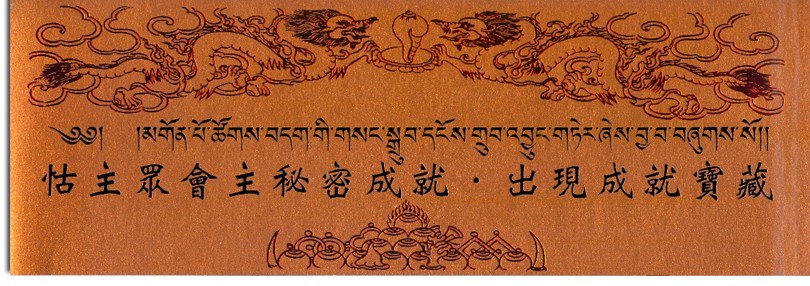 ༄༅། །མགོན་པོ་ཚོགས་བདག་གི་གསང་སྒྲུབ་དངོས་གྲུབ་འབྱུང་གཏེར་ཞེས་བྱ་བ་བཞུགས་སོ།།
怙主眾會主秘密成就·出現成就寶藏